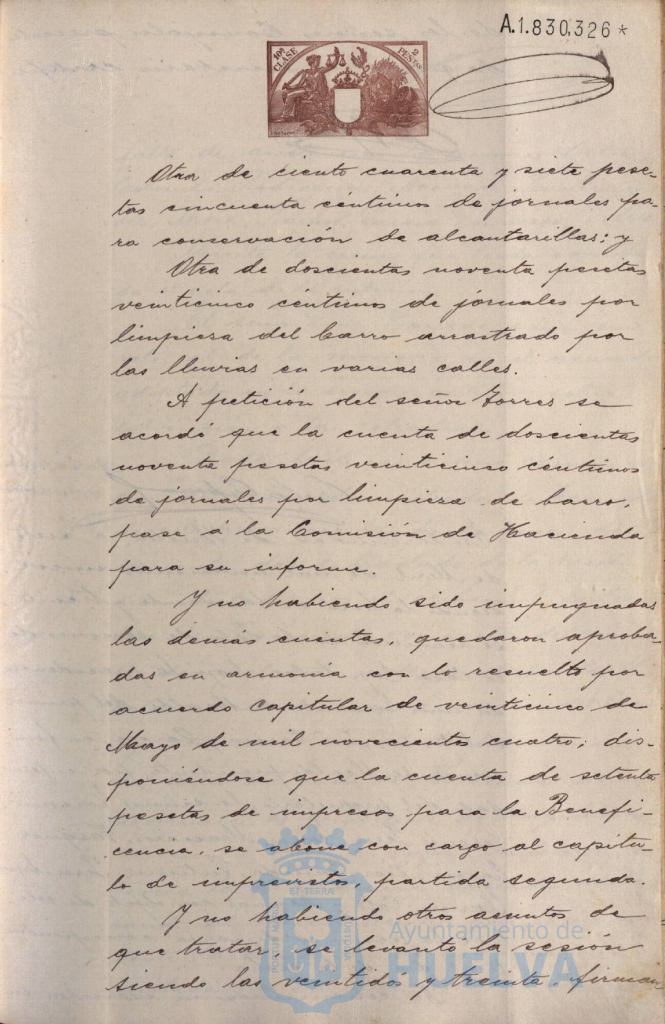 A.1.830,326 *
10ª CLASE
2 PESETAS
Otra de ciento cuarenta y siete pese-
tas cincuenta céntimos de jornales pa-
ra conservación de alcantarillas; y
Otra de doscientas noventa pesetas
veinticinco céntimos de jornales por
limpieza del barro arrastrado por
las lluvias en varias calles.
A petición del señor Torres se
acordó que la cuenta de doscientas
noventa pesetas veinticinco céntimos
de jornales por limpieza de barro,
pase á la Comisión de Hacienda
para su informe.
Y no habiendo sido impugnadas
las demás cuentas, quedaron aproba-
das en armonía con lo resuelto por
acuerdo capitular de veinticinco de
Mayo de mil novecientos cuatro; dis-
poniéndose que la cuenta de setenta
pesetas de impresos para la Benefi-
cencia, se abone con cargo al capítu-
lo de imprevistos, partida segunda.
Y no habiendo otros asuntos de
que tratar, se levantó la sesión
siendo las veintidós y treinta, firman
Ayuntamiento de
HUELVA